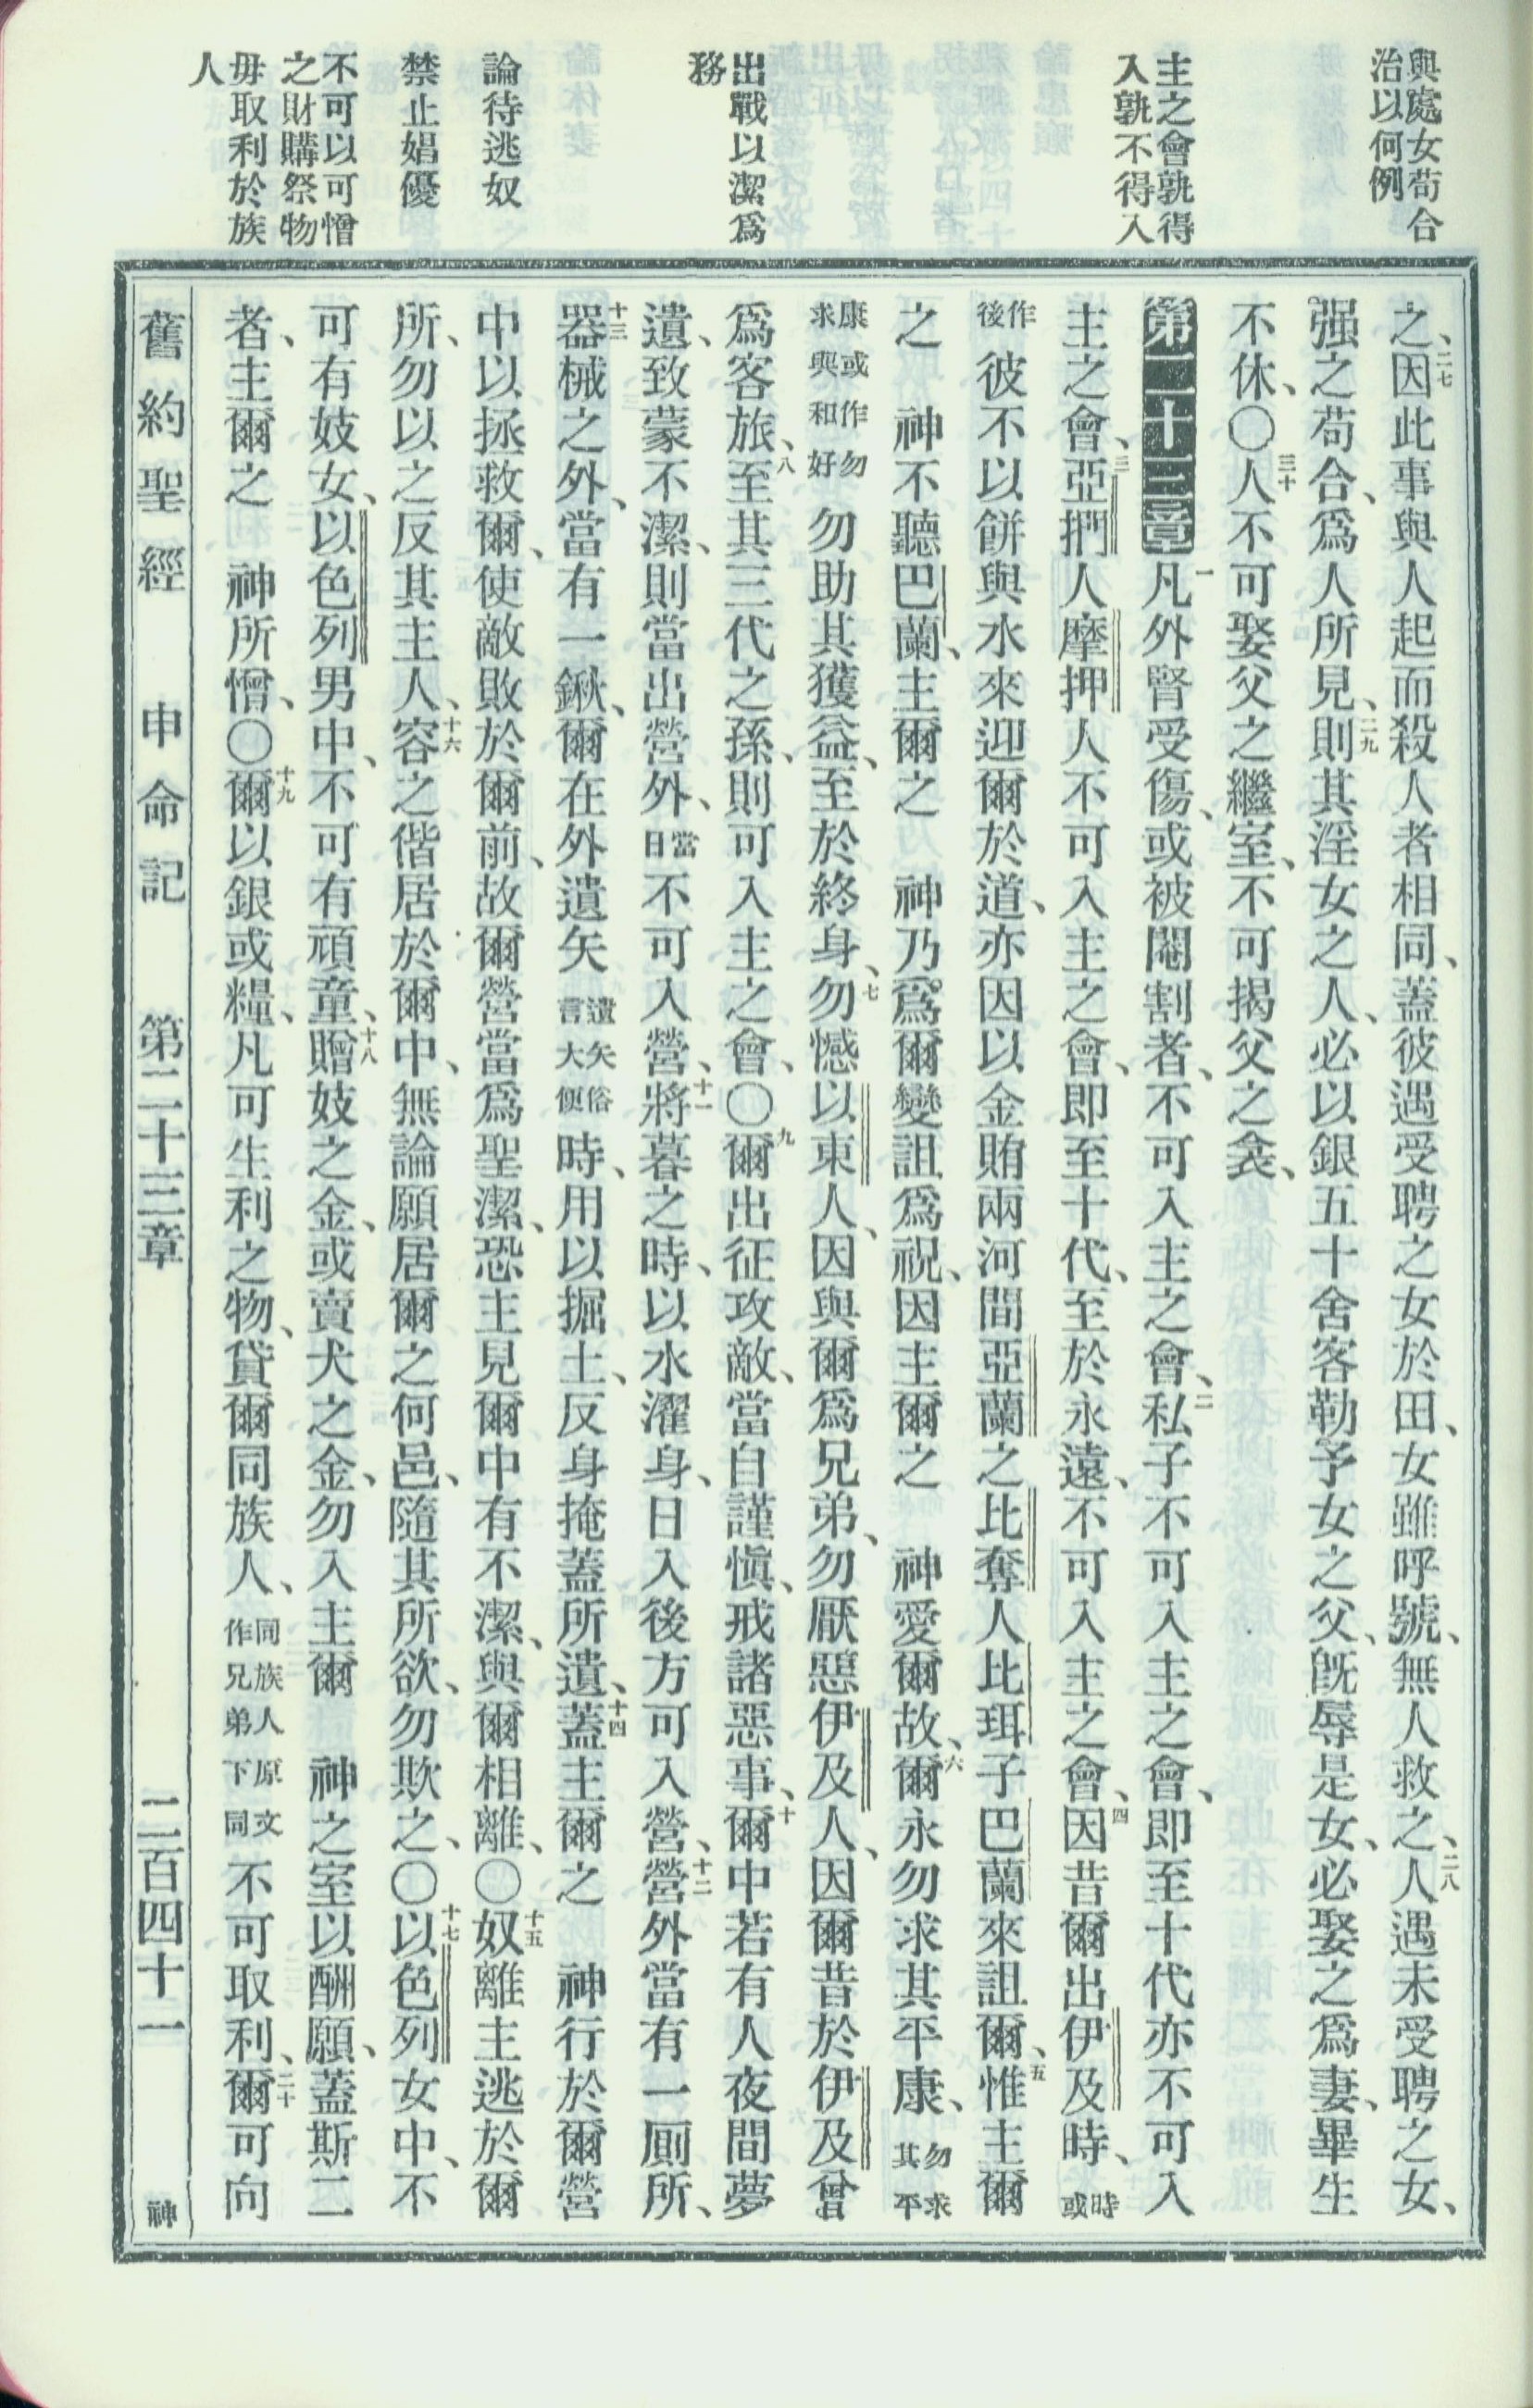 與處女苟合
治以何例
主之會孰得
入孰不得入
出戰以潔爲
務
論待逃奴
禁止娼優
不可以可憎
之財購祭物
毋取利於族
人
之、二七因此事與人起而殺人者相同、蓋彼遇受聘之女於田、女雖呼號、無人救之、二八人遇未受聘之女、
强之苟合、爲人所見、二九則其淫女之人、必以銀五十舍客勒予女之父、旣辱是女、必娶之爲妻、畢生
不休、〇三十人不可娶父之繼室、不可揭父之衾、
第二十三章 一凡外腎受傷、或被閹割者、不可入主之會、二私子不可入主之會、即至十代亦不可入
主之會、三亞捫人摩押人不可入主之會、即至十代、至於永遠、不可入主之會、四因昔爾出伊及時、時或
作後彼不以餅與水來迎爾於道、亦因以金賄兩河間亞蘭之比奪人比珥子巴蘭來詛爾、五惟主爾
之 神不聽巴蘭、主爾之 神乃爲爾變詛爲祝、因主爾之 神愛爾故、六爾永勿求其平康、勿求其平
康或作勿求與和好勿助其獲益、至於終身、七勿憾以東人、因與爾爲兄弟、勿厭惡伊及人、因爾昔於伊及曾
爲客旅、八至其三代之孫、則可入主之會、〇九爾出征攻敵、當自謹愼、戒諸惡事、十爾中若有人夜間夢
遺、致蒙不潔、則當出營外、當日不可入營、十一將暮之時、以水濯身、日入後方可入營、十二營外當有一厠所、
十三器械之外、當有一鍬、爾在外遺矢遺矢俗言大便時、用以掘土、反身掩蓋所遺、十四蓋主爾之 神行於爾營
中以拯救爾、使敵敗於爾前、故爾營當爲聖潔、恐主見爾中有不潔、與爾相離、〇十五奴離主逃於爾
所、勿以之反其主人、十六容之偕居於爾中、無論願居爾之何邑、隨其所欲、勿欺之、〇十七以色列女中、不
可有妓女、以色列男中、不可有頑童、十八贈妓之金、或賣犬之金、勿入主爾 神之室以酬願、蓋斯二
者、主爾之 神所憎、〇十九爾以銀或糧、凡可生利之物、貸爾同族人、同族人原文作兄弟下同不可取利、二十爾可向
舊約聖經 申命記 第二十三章 二百四十一 神